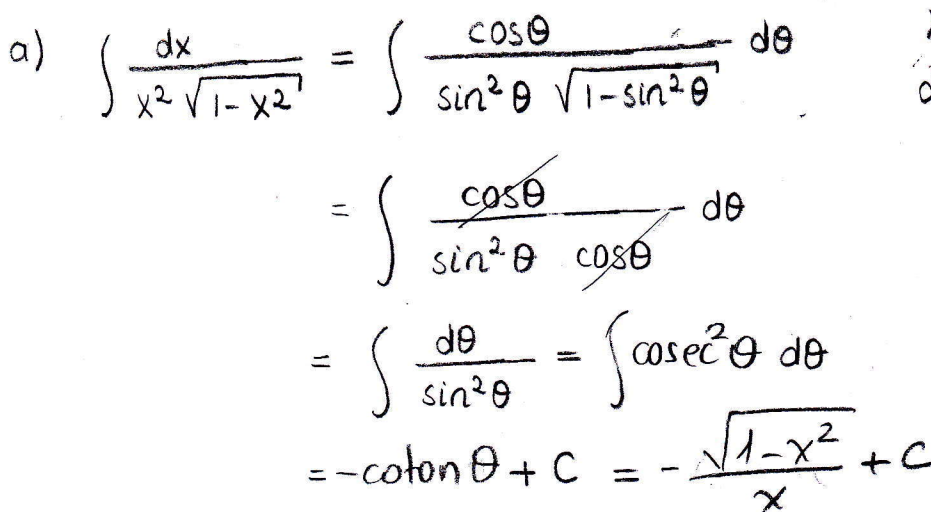 a) ∫ dx / (x² √(1-x²)) = ∫ cosθ / (sin²θ √(1-sin²θ)) dθ
= ∫ cosθ / (sin²θ cosθ) dθ
= ∫ dθ / sin²θ = ∫ cosec²θ dθ
= -cotanθ + C = - √(1-x²) / x + C